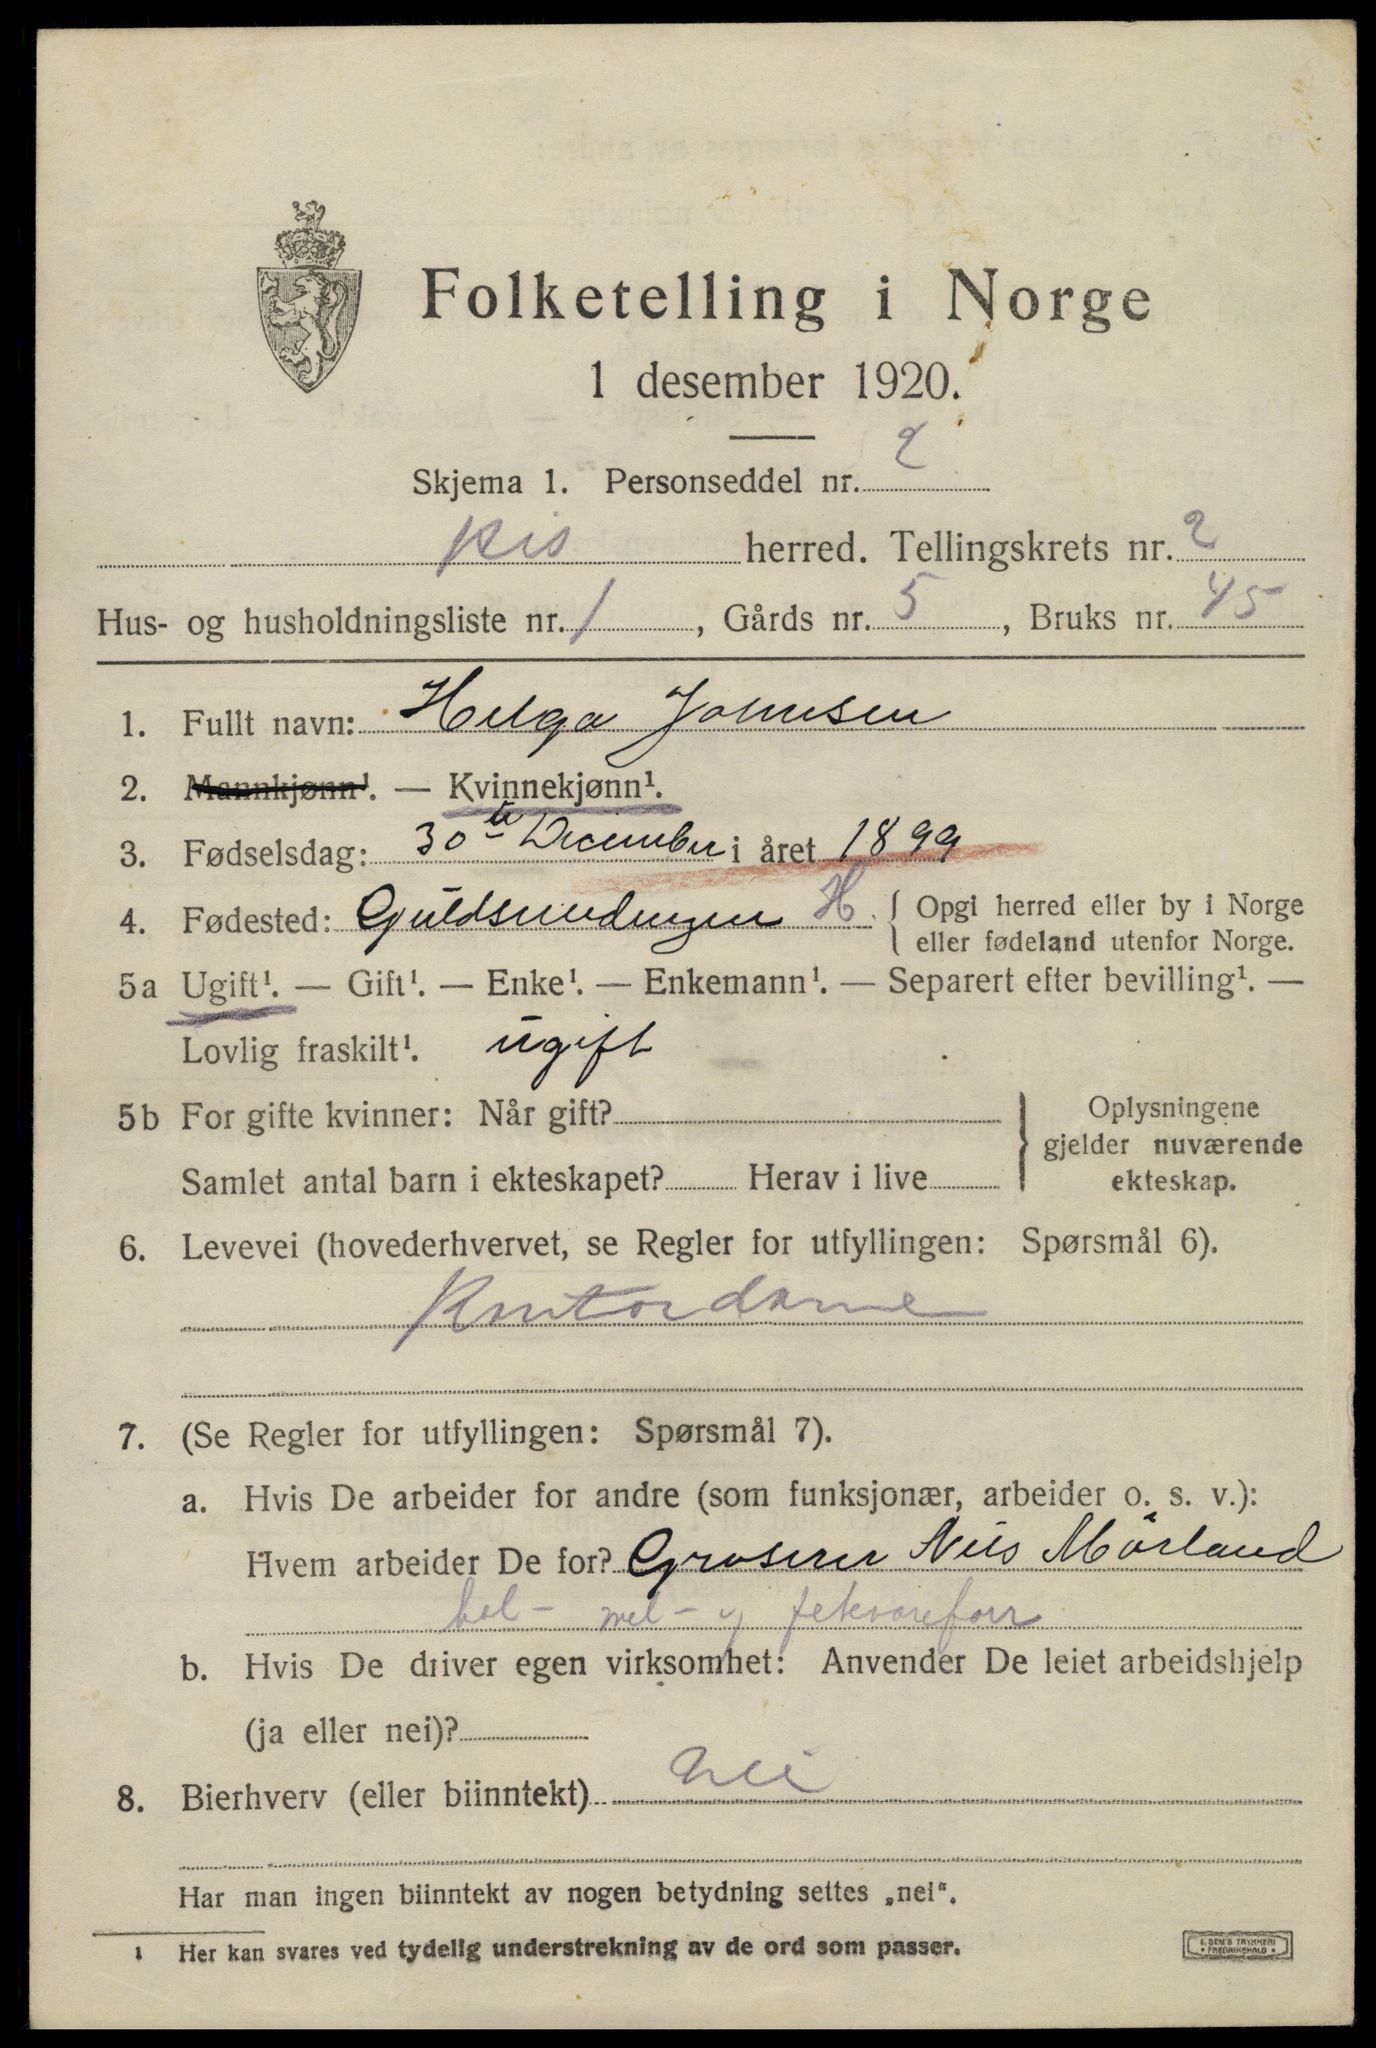 Folketelling i Norge
1 desember 1920.
Skjema 1. Personseddel nr. 2
herred. Tellingskrets nr. 2
Hus- og husholdningsliste nr. 1, Gårds nr. 5, Bruks nr. 45
1. Fullt navn: Helga Johnsen
2. Mannkjønn¹. — Kvinnekjønn¹.
3. Fødselsdag: 30te December i året 1899
4. Fødested: Guldsmedengen H. { Opgi herred eller by i Norge
eller fødeland utenfor Norge.
5a Ugift¹. — Gift¹. — Enke¹. — Enkemann¹. — Separert efter bevilling¹. —
Lovlig fraskilt¹. ugift
5b For gifte kvinner: Når gift?
Samlet antal barn i ekteskapet? Herav i live
} Oplysningene
gjelder nuværende
ekteskap.
6. Levevei (hovederhvervet, se Regler for utfyllingen: Spørsmål 6).
Kontordame
7. (Se Regler for utfyllingen: Spørsmål 7).
a. Hvis De arbeider for andre (som funksjonær, arbeider o. s. v.):
Hvem arbeider De for? Groserer Nils Mörland
mel- og
b. Hvis De driver egen virksomhet: Anvender De leiet arbeidshjelp
(ja eller nei)?
8. Bierhverv (eller biinntekt) nei
Har man ingen biinntekt av nogen betydning settes „nei“.
1 Her kan svares ved tydelig understrekning av de ord som passer.
E. SEM'S TRYKKERI
FREDRIKSHALD